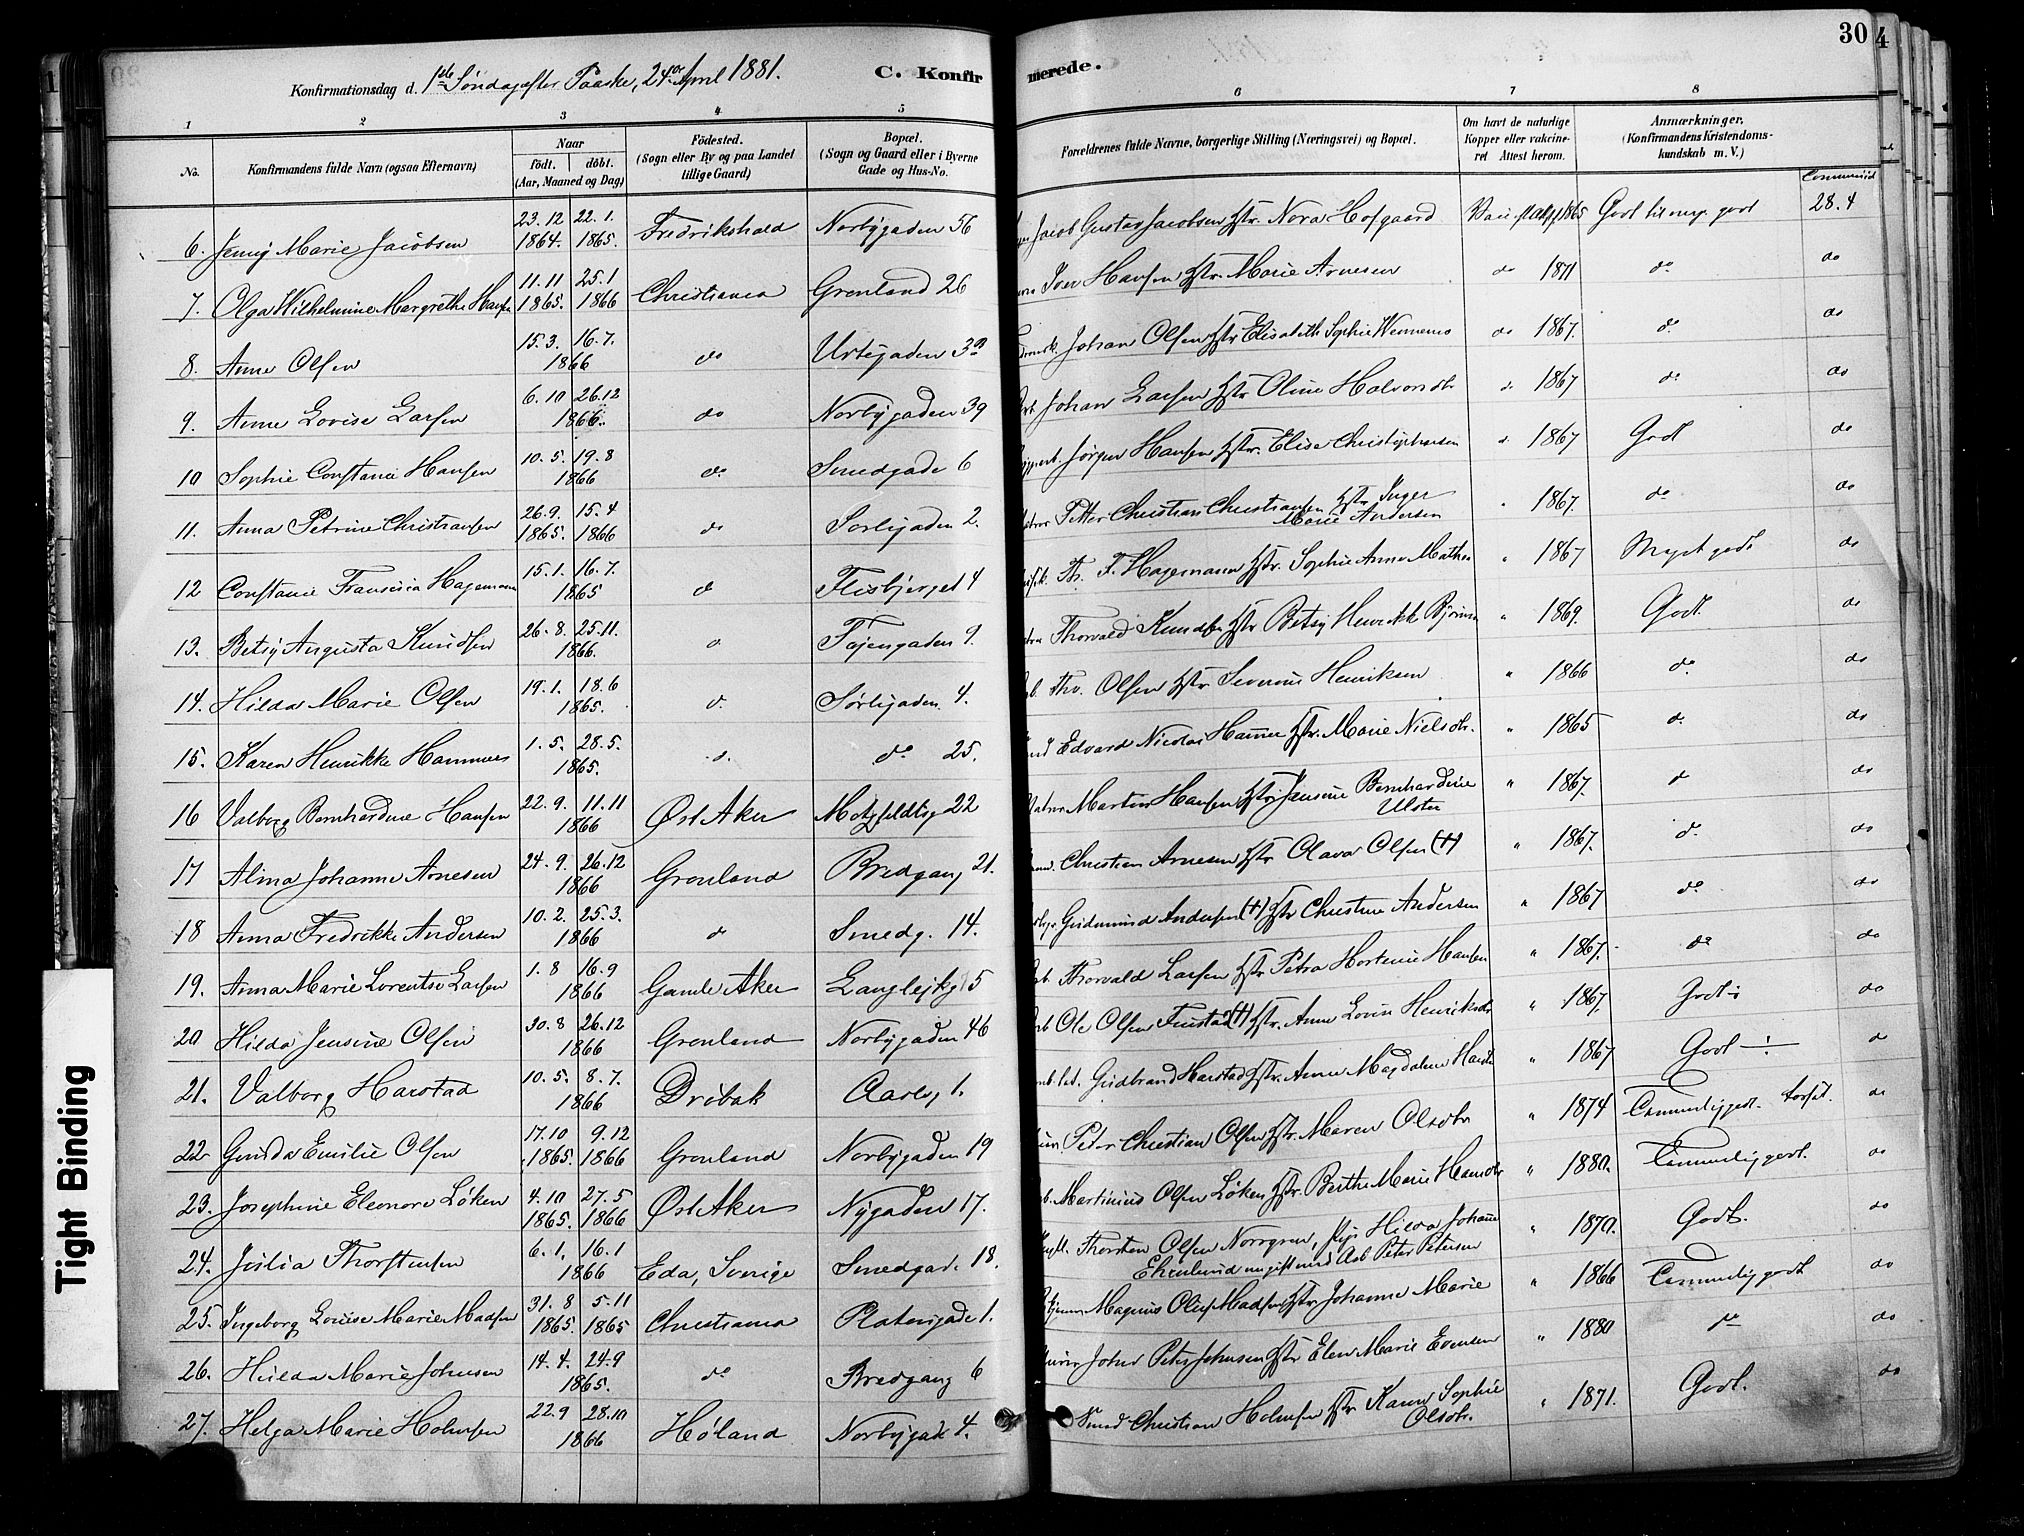 30
4
Konfirmationsdag d. 1ste Søndag efter Paaske, 24de April 1881.
C. Konfirmerede.
1 2 3 4 5 6 7 8
No. Konfirmandens fulde Navn (ogsaa Efternavn) Naar Födt. döbt. (Aar, Maaned og Dag) Födested. (Sogn eller By og paa Landet tillige Gaard) Bopæl. (Sogn og Gaard eller i Byerne Gade og Hus-No. Forældrenes fulde Navne, borgerlige Stilling (Næringsvei) og Bopæl. Om havt de naturlige Kopper eller vakcineret Attest herom. Anmærkninger. (Konfirmandens Kristendomskundskab m. V.)
6. Jenny Marie Jacobsen 23.12 1864. 22.1. 1865. Fredrikshald Norbygaden 56 Jacob Gustav Jacobsen Hstr. Nora Hofgaard 1865 Godt til meg. godt 28.4
7. Olga Wilhelmine Margrethe Hansen 11.11 1865. 25.1 1866 Christiania Grønland 26 Iver Hansen Hstr. Marie Arnesen do 1871 do do
8. Anne Olsen 15.3. 16.7. 1866 do Urtegaden 39 Johan Olsen Hstr Elisabeth Sophie do 1867. do do
9. Anne Lovise Larsen 6.10 26.12 1866. do Norbygaden 39 Johan Larsen Hstr Oline Halvorsdtr do 1867 do do
10 Sophie Constance Hansen 10.5. 19.8 1866 do Smedgade 6 Jørgen Hansen Hstr. Elise Christophersen 1867 Godt do
11. Anna Petrine Christiansen 26.9. 1865. 15.4 1866 do Sørligaden 2. Petter Christian Christiansen Hstr Inger Marie Andersen " 1867. do do
12 Constance Francisca Hagemann 15.1. 16.7. 1865 do Flisbjerget 4 Th. F. Hagemann Hstr. Sophie Anne " 1867 Meget godt do
13. Betsy Augusta Knudsen 26.8. 25.11. 1866. do Tøjengaden 9. Thorvald Knudsen Hstr Betsy Henrikke " 1869. Godt. do
14. Hilda Marie Olsen 19.1. 18.6 1865. do Sørligaden 4. Th. Olsen Hstr Severine Henriksen " 1866 do do
15. Karen Henrikke Hammer 1.5. 28.5. 1865. do do 25. Edvard Nicolai Hammer Hstr. Marie Nielsdtr. " 1865 do do
16 Valborg Bernhardine Hansen 22.9. 11.11 1866 Øst Aker Motzfeldtsg 22 Martin Hansen Hstr Jensine Bernhardine " 1867. do do
17 Alma Johanne Arnesen 24.9. 26.12 1866 Grønland Bredgang 21. Christian Arnesen Hstr Olava Olsen (+) " 1867. do do
18 Anna Fredrikke Andersen 10.2. 25.3. 1866 do Smedg. 14. Gudmund Andersen (+) Hstr Christine Andersen " 1867 do do
19. Anna Marie Lorentse Larsen 1.8 16.9 1866 Gamle Aker Langlejkg 5 Thorvald Larsen Hstr Petra Hortense Hansen " 1867. do do
20 Hilda Jensine Olsen 30.8 26.12 1866 Grønland Norbygaden 46 Ole Olsen (+) Hstr. Anne Lovise Henriksdtr " 1867. Godt÷ do
21. Valborg Harstad 10.5. 8.7. 1866 Drøbak Aarbg 1. Gudbrand Harstad Hstr. Anne Magdalene " 1867 Godt÷ do
22. Gunda Emilie Olsen 17.10 1865. 9.12 1866 Grønland Norbygaden 19 Peter Christian Olsen Hstr. Maren Olsdtr " 1874 Temmelig godt. do
23. Josephine Eleonore Løken 4.10 1865. 27.5 1866 Øst Aker Nygaden 17. Martinius Olsen Løken Hstr. Berthe Marie Hansdtr " 1880. Temmelig godt. do
24. Julia Thorstensen 6.1. 16.1 1866 Eda, Sverige Smedgad. 18. Thorsten Olsen Norrgren, Pige Hilda Johanne Ehrnlund nu gift med Arb Peter Petersen " 1870. Godt. do
25. Ingeborg Louise Marie Madsen 31.8 1865. 5.11 1865 Christiania Platousgade 1. Magnus Olaf Madsen Hstr. Johanne Marie " 1866 Temmelig godt do
26. Hilda Marie Johnsen 14.4. 24.9 1865. do Bredgang 6 Johan Peter Johnsen Hstr Elen Marie Evensen " 1880 do do
27. Helga Marie Holmsen 22.9 28.10 1866 Høland Norbygade 4. Smed Christian Holmsen Hstr Karen Sophie Olsdtr. " 1871. Godt. do
Tight Binding